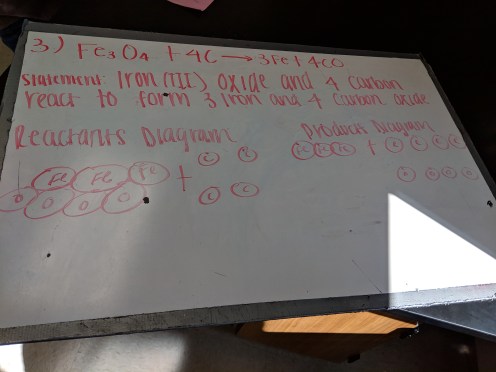 3) Fe3O4 + 4C → 3Fe + 4CO
Statement: Iron (III) oxide and 4 carbon
react to form 3 Iron and 4 Carbon oxide
Reactants Diagram
Products Diagram
Fe Fe Fe + C C
O O O O C C
Fe Fe Fe + C C C C
O O O O